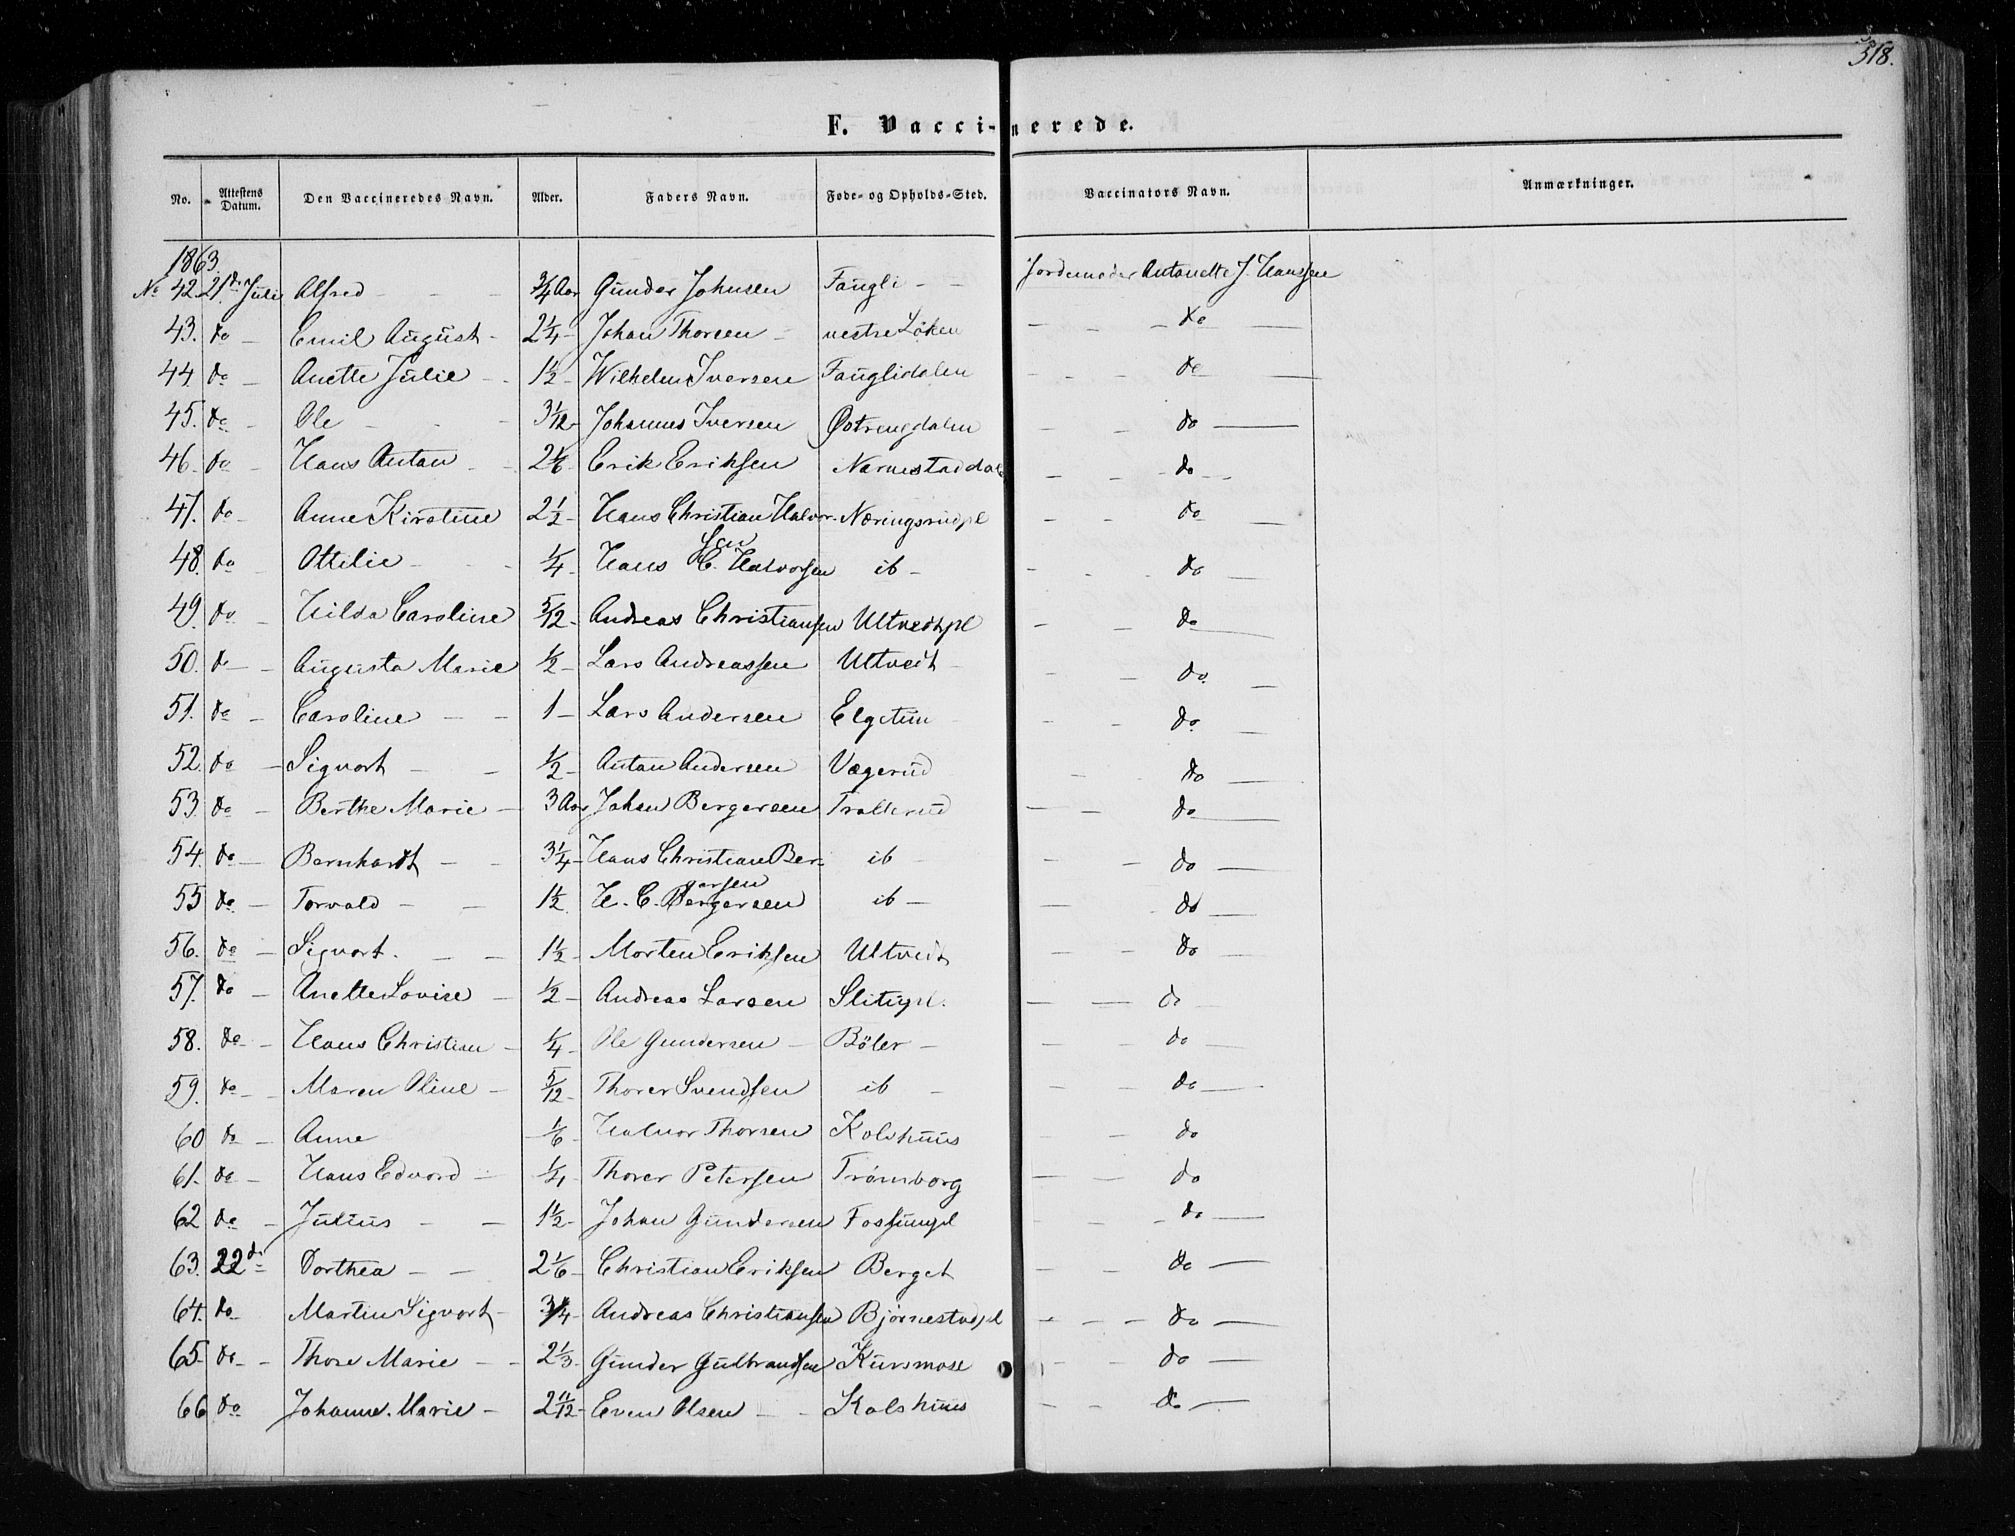 318.
F. Vaccinerede.
No. Attestens Datum. Den Vaccineredes Navn. Alder. Faders Navn. Føde- og Opholds-Sted. Vaccinators Navn. Anmærkninger.
1863.
No 42. 21de Juli Alfred - - - 3/4 Aar Gunder Johnsen Faugli - - Jordemoder Antonette J. Hanssen
43. do - Emil August - 2 1/4 - Johan Thorsen - vestre Löken - - - do -
44 do - Anette Julie - - 1 1/2 - Wilhelm Iversen Fauglidalen - - - do -
45. do - Ole - - - 3 1/12 - Johannes Iversen Østrengdalen - - do -
46. do - Hans Anton - - 2 1/6 Erik Eriksen Narnestaddal - - do -
47. do - Anne Kirstine 2 1/2 - Hans Christian Halvor- Næringsrudpl - - do -
sen
48. do - Ottilie - - - 1/4 - Hans C. Halvorsen ib - - - do -
49. do - Hilda Caroline 5/12 - Andreas Christiansen Ultvedtpl - - do -
50. do - Augusta Marie 1/2 - Lars Andreassen Ultvedt - - - do -
51. do - Caroline - - 1 - Lars Andersen Elgetun - - do -
52. do - Sigvart - - 1/2 - Antan Andersen Vægerud - - do -
53. do - Berthe Marie - 3 Aar Johan Bergersen Trollerud - - do -
54. do - Bernhardt - - 3 1/4 - Hans Christian Ber- ib - - - do -
gersen
55 do - Torvald - - 1 1/2 H. C. Bergersen ib - - - do -
56. do - Sigvart. - - 1 1/2 - Morten Eriksen Ultvedt - - do -
57. do - Anette Lovise - 1/2 - Andreas Larsen Slitupl. - - do -
58. do - Hans Christian - 1/4 - Ole Gundersen - Böler - - - do -
59. do - Maren Oline - 5/12 - Thorer Svendsen ib - - - do -
60 do - Anne - 1/6 - Halvor Thorsen Kolshuus - - do
61. do - Hans Edvard - 1/4 - Thorer Petersen Trömborg - - do
62 do - Julius - - 1 1/2 - Johan Gundersen Fossumpl - - do -
63. 22de Dorthea - - 2 1/6 - Christian Eriksen Berget - - do -
64. do Martin Sigvart - 3/4 - Andreas Christiansen Bjørnestadpl - - - do -
65. do - Thore Marie - - 2 1/3 - Gunder Gulbrandsen Kursmose - - do -
66 do Johanne Marie - 2 11/12 - Even Olsen - - Kolshuus - - do -